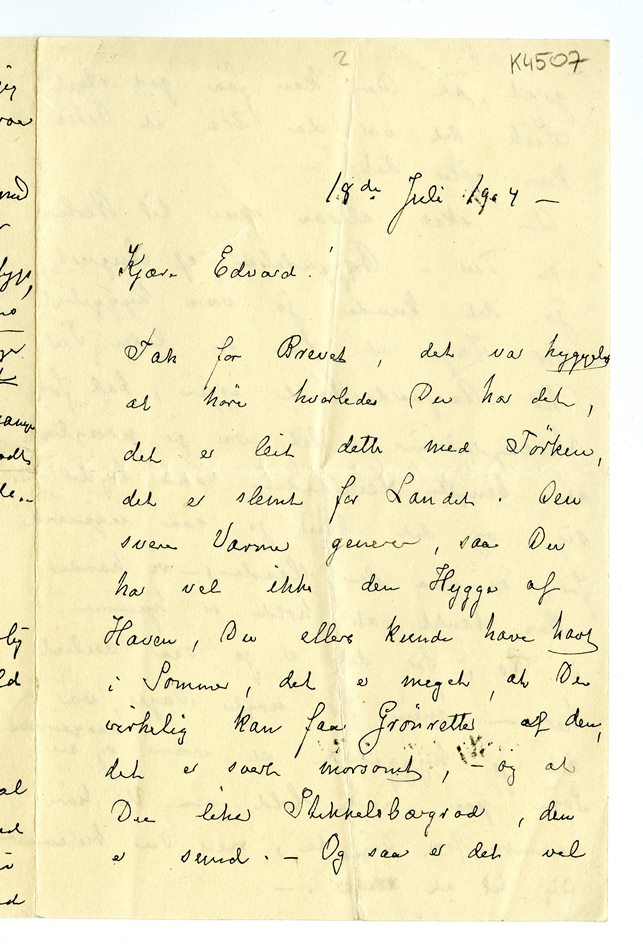 2
K4507
18de Juli 1904 —
Kjære Edvard!
Tak for Brevet, det var hyggeligt
at höre hvorledes Du har det,
det er leit dette med Törken,
det er slemt for Landet. Den
svere Varme generer, saa Du
har vel ikke den Hygge af
Haven, Du ellers kunde have havt
i Sommer, det er meget, at Du
virkelig kan faa Grönretter af den,
det er svært morsomt, – og at
Du liker Stikkelsbærgrød, den
er sund. — Og saa er det vel